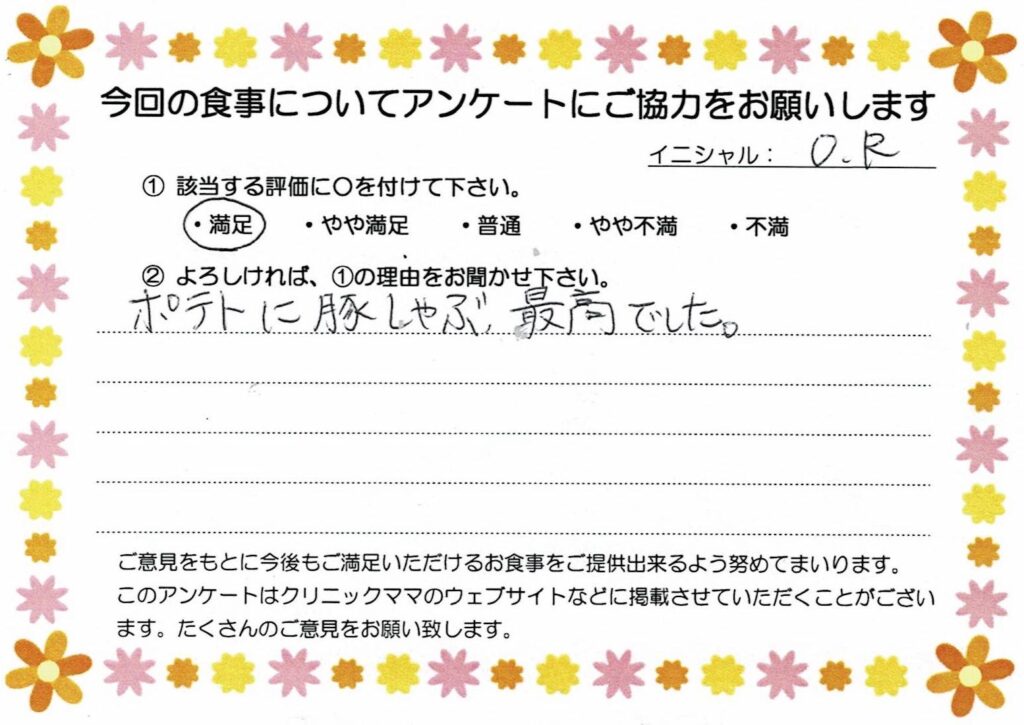 今回の食事についてアンケートにご協力をお願いします
イニシャル： O.R
① 該当する評価に〇を付けて下さい。
・満足 ・やや満足 ・普通 ・やや不満 ・不満
② よろしければ、①の理由をお聞かせ下さい。
ポテトに豚しゃぶ、最高でした。
ご意見をもとに今後もご満足いただけるお食事をご提供出来るよう努めてまいります。
このアンケートはクリニックママのウェブサイトなどに掲載させていただくことがござい
ます。たくさんのご意見をお願い致します。